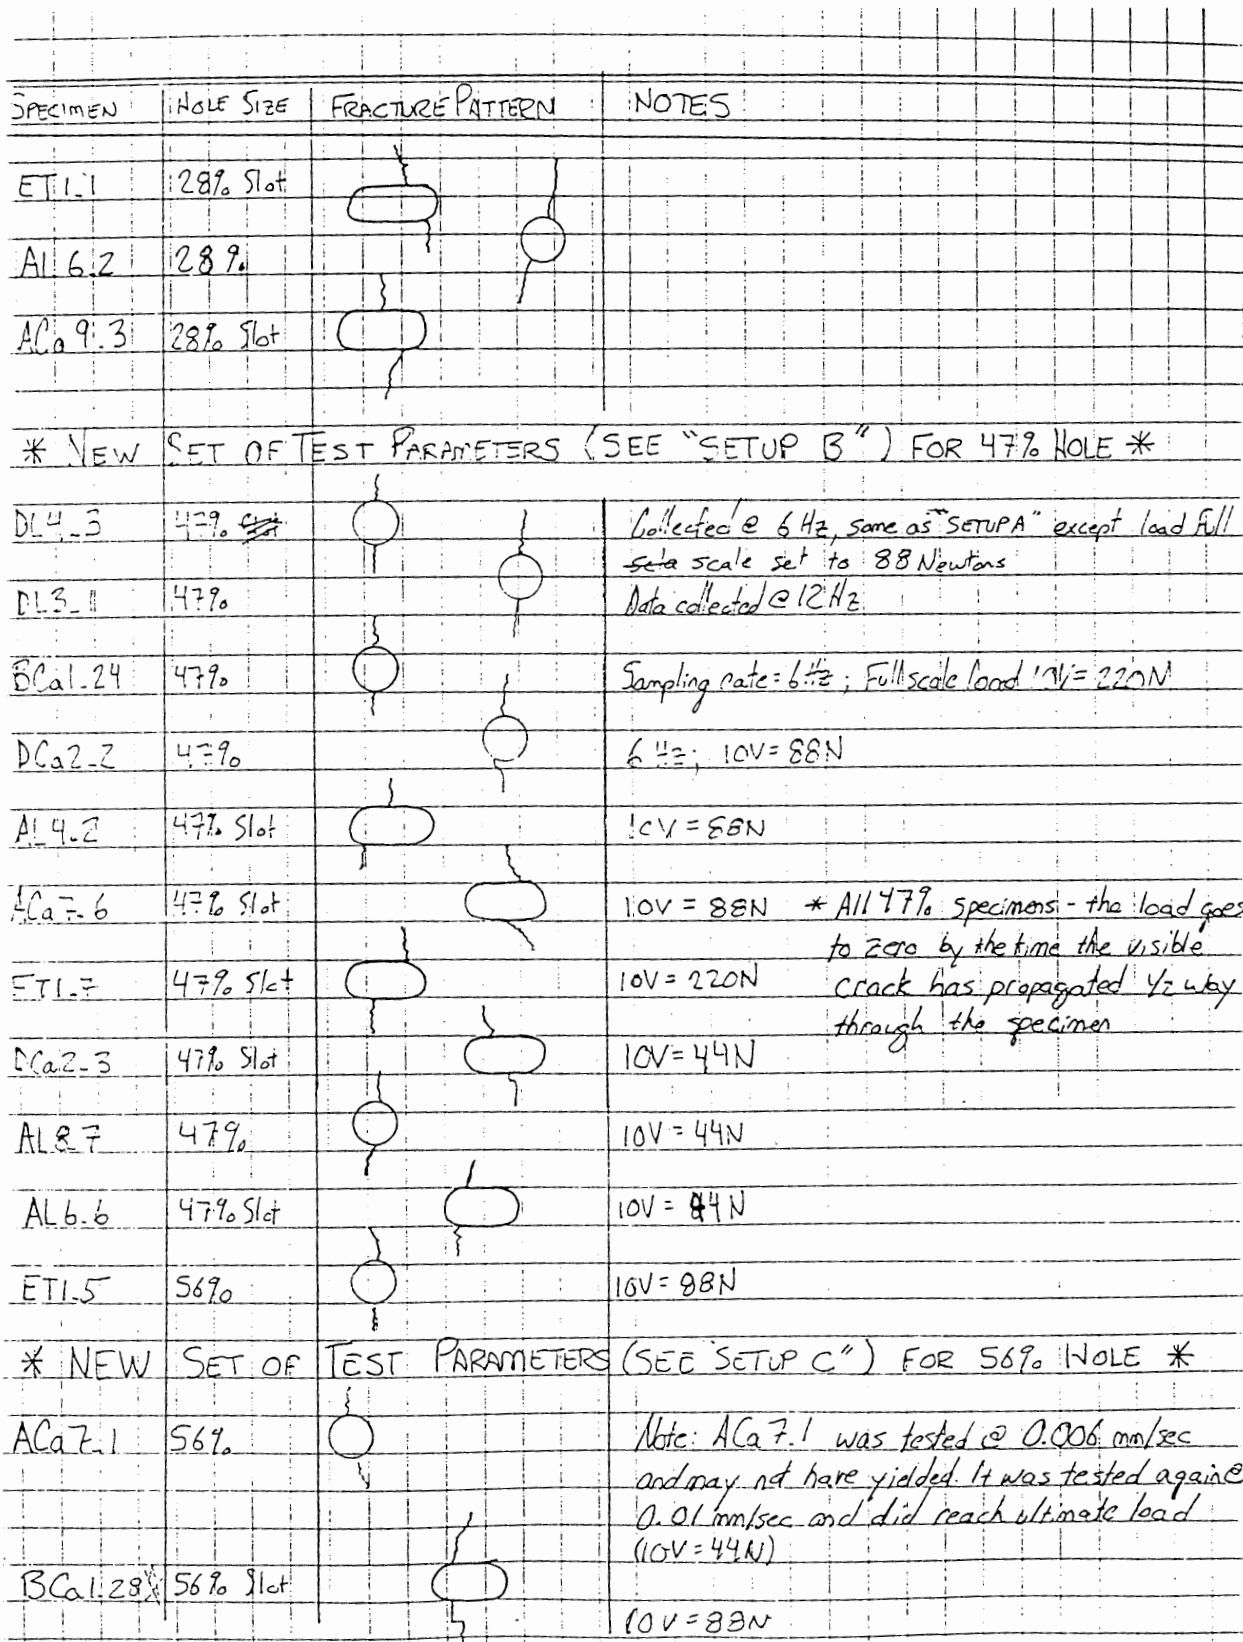 SPECIMEN HOLE SIZE FRACTURE PATTERN NOTES
ET1.1 28% Slot
AL 6.2 28%
ACa 9.3 28% Slot
* NEW SET OF TEST PARAMETERS (SEE "SETUP B") FOR 47% HOLE *
DL4-3 47% Collected @ 6 Hz, same as "SETUP A" except load full
scale set to 88 Newtons
DL3-1 47% Data collected @ 12 Hz
BCa1.24 47% Sampling rate = 6 Hz ; Full scale load 10V = 220N
DCa2-2 47% 6 Hz; 10V = 88N
AL4-2 47% Slot 10V = 88N
ACa7-6 47% Slot 10V = 88N * All 47% specimens - the load goes
to zero by the time the visible
ET1-7 47% Slot 10V = 220N crack has propagated 1/2 way
through the specimen
DCa2-3 47% Slot 10V = 44N
AL8-7 47% 10V = 44N
AL6-6 47% Slot 10V = 44N
ET1-5 56% 10V = 88N
* NEW SET OF TEST PARAMETERS (SEE "SETUP C") FOR 56% HOLE *
ACa7.1 56% Note: ACa7.1 was tested @ 0.006 mm/sec
and may not have yielded. It was tested again @
0.01 mm/sec and did reach ultimate load
(10V = 44N)
BCa1.28 56% Slot
10V = 88N